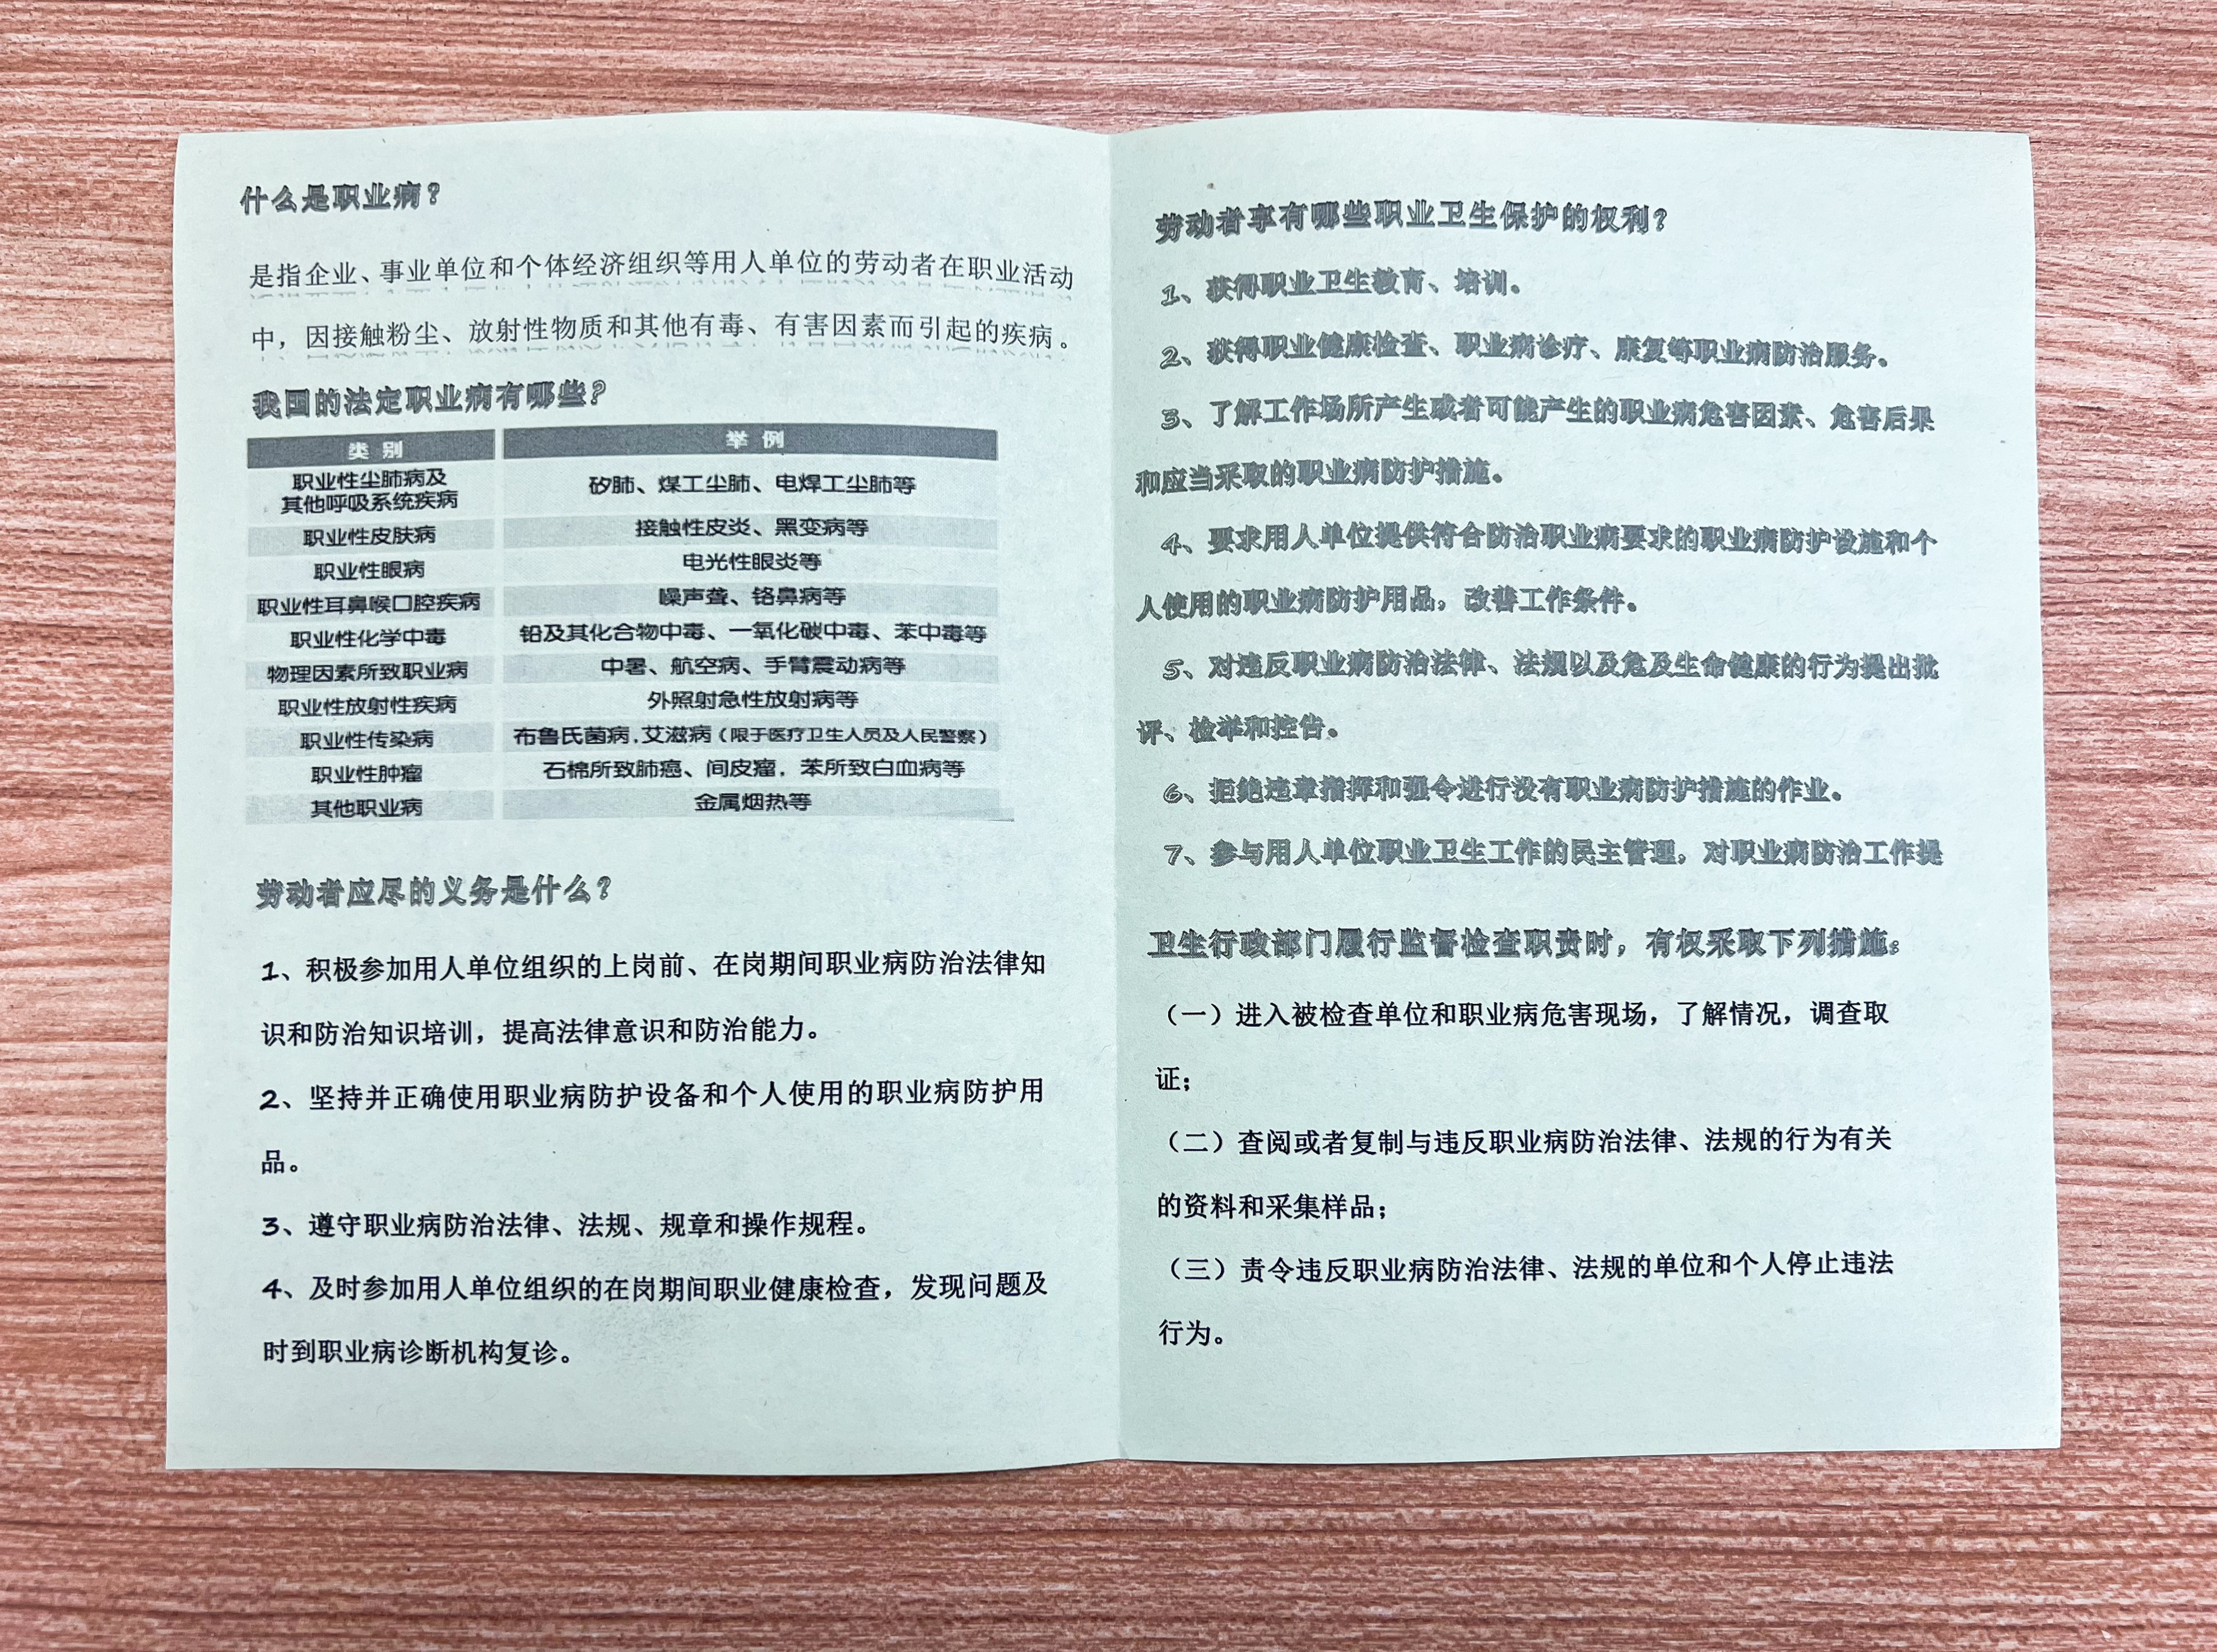 什么是职业病？
是指企业、事业单位和个体经济组织等用人单位的劳动者在职业活动
中，因接触粉尘、放射性物质和其他有毒、有害因素而引起的疾病。
我国的法定职业病有哪些？
类 别 举 例
职业性尘肺病及
其他呼吸系统疾病 矽肺、煤工尘肺、电焊工尘肺等
职业性皮肤病 接触性皮炎、黑变病等
职业性眼病 电光性眼炎等
职业性耳鼻喉口腔疾病 噪声聋、铬鼻病等
职业性化学中毒 铅及其化合物中毒、一氧化碳中毒、苯中毒等
物理因素所致职业病 中暑、航空病、手臂震动病等
职业性放射性疾病 外照射急性放射病等
职业性传染病 布鲁氏菌病,艾滋病（限于医疗卫生人员及人民警察）
职业性肿瘤 石棉所致肺癌、间皮瘤，苯所致白血病等
其他职业病 金属烟热等
劳动者应尽的义务是什么？
1、积极参加用人单位组织的上岗前、在岗期间职业病防治法律知
识和防治知识培训，提高法律意识和防治能力。
2、坚持并正确使用职业病防护设备和个人使用的职业病防护用
品。
3、遵守职业病防治法律、法规、规章和操作规程。
4、及时参加用人单位组织的在岗期间职业健康检查，发现问题及
时到职业病诊断机构复诊。
劳动者享有哪些职业卫生保护的权利？
1、获得职业卫生教育、培训。
2、获得职业健康检查、职业病诊疗、康复等职业病防治服务。
3、了解工作场所产生或者可能产生的职业病危害因素、危害后果
和应当采取的职业病防护措施。
4、要求用人单位提供符合防治职业病要求的职业病防护设施和个
人使用的职业病防护用品，改善工作条件。
5、对违反职业病防治法律、法规以及危及生命健康的行为提出批
评、检举和控告。
6、拒绝违章指挥和强令进行没有职业病防护措施的作业。
7、参与用人单位职业卫生工作的民主管理，对职业病防治工作提
卫生行政部门履行监督检查职责时，有权采取下列措施：
（一）进入被检查单位和职业病危害现场，了解情况，调查取
证；
（二）查阅或者复制与违反职业病防治法律、法规的行为有关
的资料和采集样品；
（三）责令违反职业病防治法律、法规的单位和个人停止违法
行为。